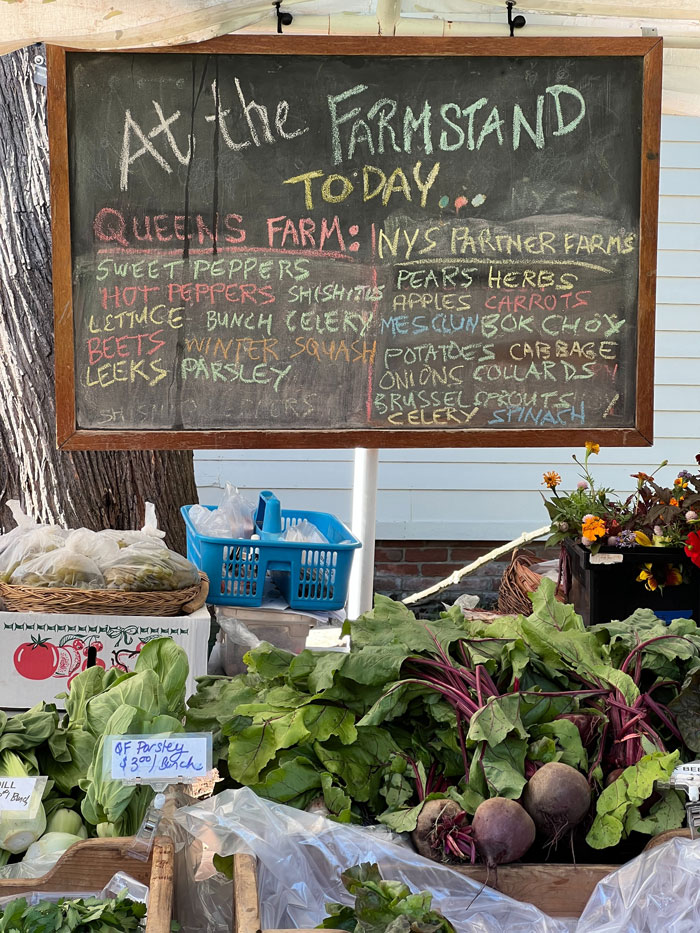 At the FARMSTAND
TODAY...
QUEENS FARM:
SWEET PEPPERS
HOT PEPPERS SHISHITOS
LETTUCE BUNCH CELERY
BEETS WINTER SQUASH
LEEKS PARSLEY
NYS PARTNER FARMS
PEARS HERBS
APPLES CARROTS
MESCLUN BOK CHOY
POTATOES CABBAGE
ONIONS COLLARDS
BRUSSEL SPROUTS
CELERY SPINACH
QF Parsley
$3.00/Bunch
DILL